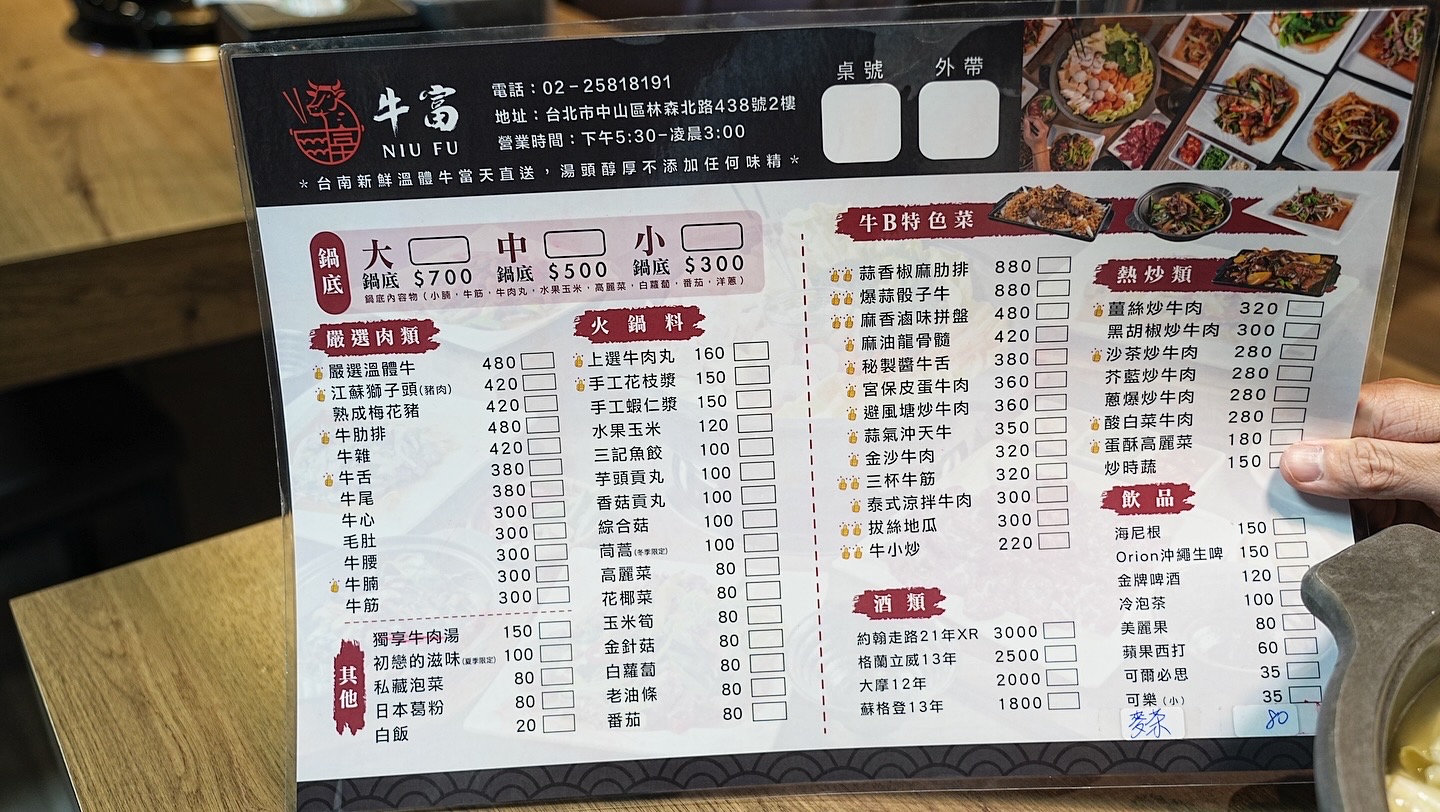 牛富
NIU FU
電話：02-25818191
地址：台北市中山區林森北路438號2樓
營業時間：下午5:30-凌晨3:00
*台南新鮮溫體牛當天直送，湯頭醇厚不添加任何味精*
桌號
外帶
鍋底
大 鍋底 $700
中 鍋底 $500
小 鍋底 $300
鍋底內容物（小腩，牛筋，牛肉丸，水果玉米，高麗菜，白蘿蔔，番茄，洋蔥）
嚴選肉類
嚴選溫體牛 480
江蘇獅子頭(豬肉) 420
熟成梅花豬 420
牛肋排 480
牛雜 420
牛舌 380
牛尾 380
牛心 300
毛肚 300
牛腰 300
牛腩 300
牛筋 300
其他
獨享牛肉湯 150
初戀的滋味(夏季限定) 100
私藏泡菜 80
日本葛粉 80
白飯 20
火鍋料
上選牛肉丸 160
手工花枝漿 150
手工蝦仁漿 150
水果玉米 120
三記魚餃 100
芋頭貢丸 100
香菇貢丸 100
綜合菇 100
茼蒿(冬季限定) 100
高麗菜 80
花椰菜 80
玉米筍 80
金針菇 80
白蘿蔔 80
老油條 80
番茄 80
牛B特色菜
蒜香椒麻肋排 880
爆蒜骰子牛 880
麻香滷味拼盤 480
麻油龍骨髓 420
秘製醬牛舌 380
宮保皮蛋牛肉 360
避風塘炒牛肉 360
蒜氣沖天牛 350
金沙牛肉 320
三杯牛筋 320
泰式涼拌牛肉 300
拔絲地瓜 300
牛小炒 220
酒類
約翰走路21年XR 3000
格蘭立威13年 2500
大摩12年 2000
蘇格登13年 1800
熱炒類
薑絲炒牛肉 320
黑胡椒炒牛肉 300
沙茶炒牛肉 280
芥藍炒牛肉 280
蔥爆炒牛肉 280
酸白菜牛肉 280
蛋酥高麗菜 180
炒時蔬 150
飲品
海尼根 150
Orion沖繩生啤 150
金牌啤酒 120
冷泡茶 100
美麗果 80
蘋果西打 60
可爾必思 35
可樂(小) 35
麥茶 80